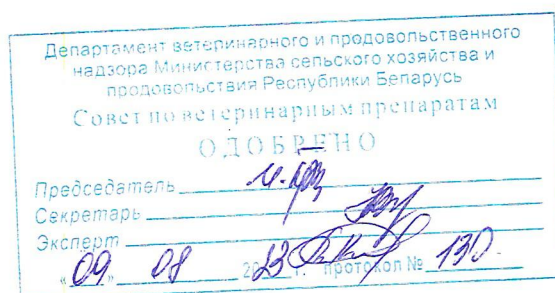 Департамент ветеринарного и продовольственного
надзора Министерства сельского хозяйства и
продовольствия Республики Беларусь
Совет по ветеринарным препаратам
ОДОБРЕНО
Председатель
Секретарь
Эксперт
«09» 08 2023 г. протокол № 130.